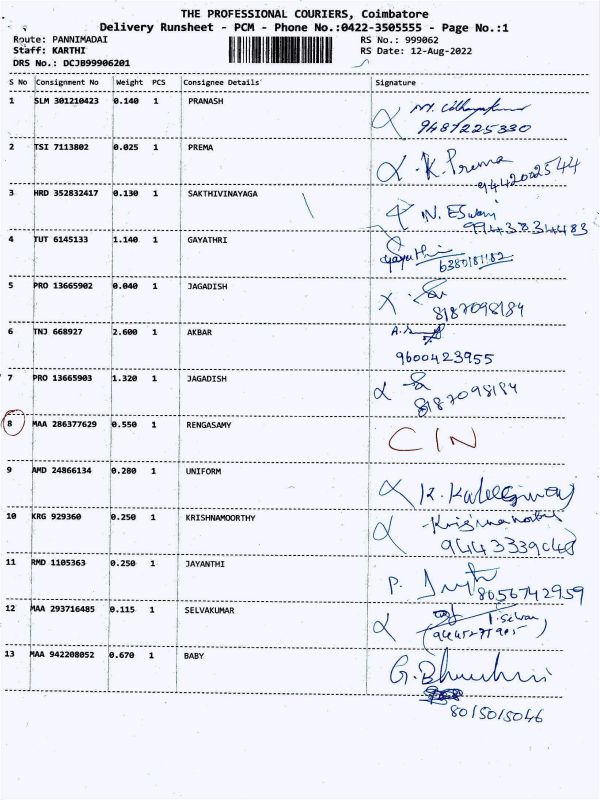 THE PROFESSIONAL COURIERS, Coimbatore
Delivery Runsheet - PCM - Phone No.:0422-3505555 - Page No.:1
Route: PANNIMADAI RS No.: 999062
Staff: KARTHI RS Date: 12-Aug-2022
DRS No.: DCJB99906201
S No Consignment No Weight PCS Consignee Details Signature
1 SLM 301210423 0.140 1 PRANASH
9487225330
2 TSI 7113802 0.025 1 PREMA K. Prema
9442002544
3 HRD 352832417 0.130 1 SAKTHIVINAYAGA N. Eswari
4 TUT 6145133 1.140 1 GAYATHRI Gayathri
6380181182
5 PRO 13665902 0.040 1 JAGADISH
8187098184
6 TNJ 668927 2.600 1 AKBAR
9600423955
7 PRO 13665903 1.320 1 JAGADISH
8187098184
8 MAA 286377629 0.550 1 RENGASAMY CIN
9 AMD 24866134 0.280 1 UNIFORM
10 KRG 929360 0.250 1 KRISHNAMOORTHY
11 RMD 1105363 0.250 1 JAYANTHI P.
8056742959
12 MAA 293716485 0.115 1 SELVAKUMAR
13 MAA 942208052 0.670 1 BABY G.
8015015046